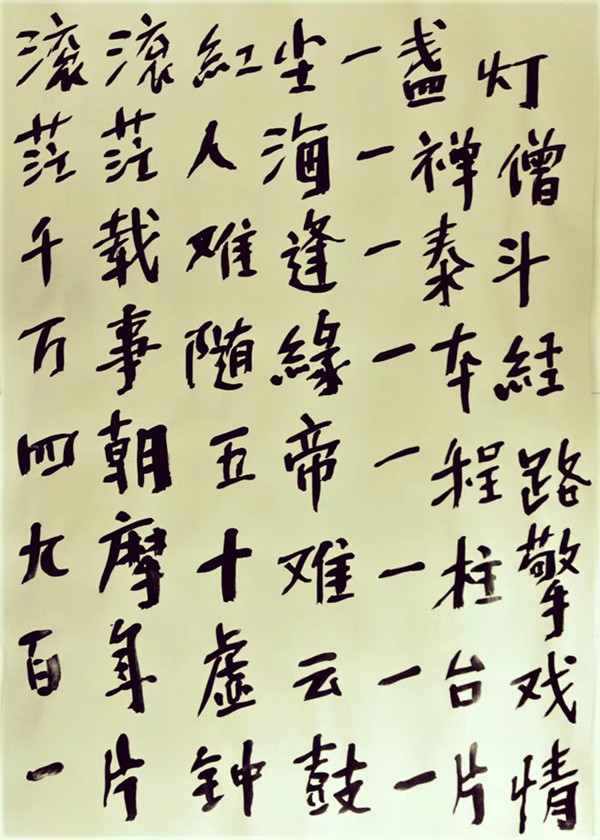 滚滚紅尘一盏灯
茫茫人海一禅僧
千载难逢一泰斗
万事随緣一本経
四朝五帝一程路
九摩十难一柱擎
百年虚云一台戏
一片钟鼓一片情